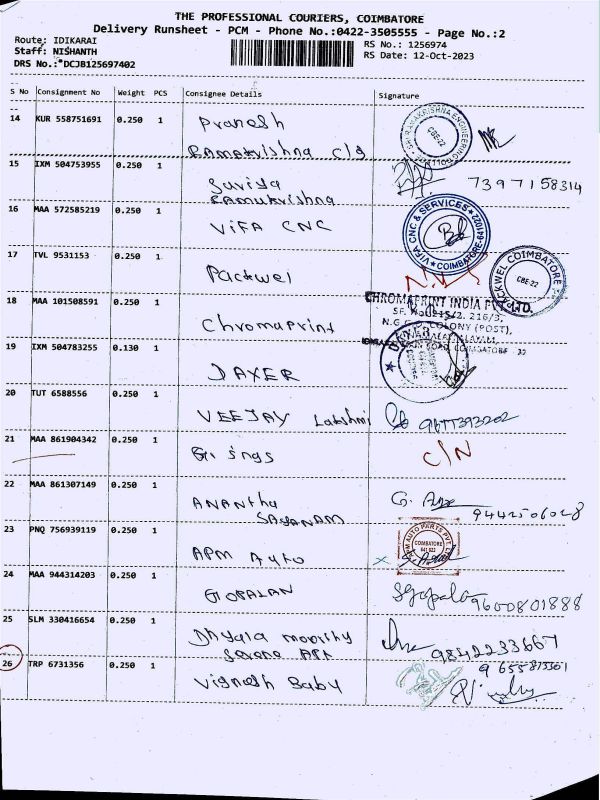 THE PROFESSIONAL COURIERS, COIMBATORE
Delivery Runsheet - PCM - Phone No.:0422-3505555 - Page No.:2
Route: IDIKARAI
RS No.: 1256974
Staff: NISHANTH
RS Date: 12-Oct-2023
DRS No.:*DCJB125697402
S No Consignment No Weight PCS Consignee Details Signature
14 KUR 558751691 0.250 1 Pranesh
Ramakrishna C/S
CBE-22
15 IXM 504753955 0.250 1 7397158314
Ramakrishna
16 MAA 572585219 0.250 1 ViFA CNC
VIFA CNC & SERVICES COIMBATORE-641022
17 TVL 9531153 0.250 1 Packwel
PACKWEL COIMBATORE
CBE-22
18 MAA 101508591 0.250 1 Chromaprint
CHROMAPRINT INDIA PVT. LTD.
SF. No. 215/2, 216/3,
COLONY (POST),
COIMBATORE - 32
19 IXM 504783255 0.130 1 DAXER
20 TUT 6588556 0.250 1 VEEJAY Lakshmi
21 MAA 861904342 0.250 1 C/N
22 MAA 861307149 0.250 1 ANANtha
SAYANAM
9442506028
23 PNQ 756939119 0.250 1 APM Auto
APM AUTO PARTS PVT. LTD
COIMBATORE
24 MAA 944314203 0.250 1 GOPALAN
9600801888
25 SLM 330416654 0.250 1 Dhyala moorthy
9842233667
26 TRP 6731356 0.250 1 Vignesh Baby